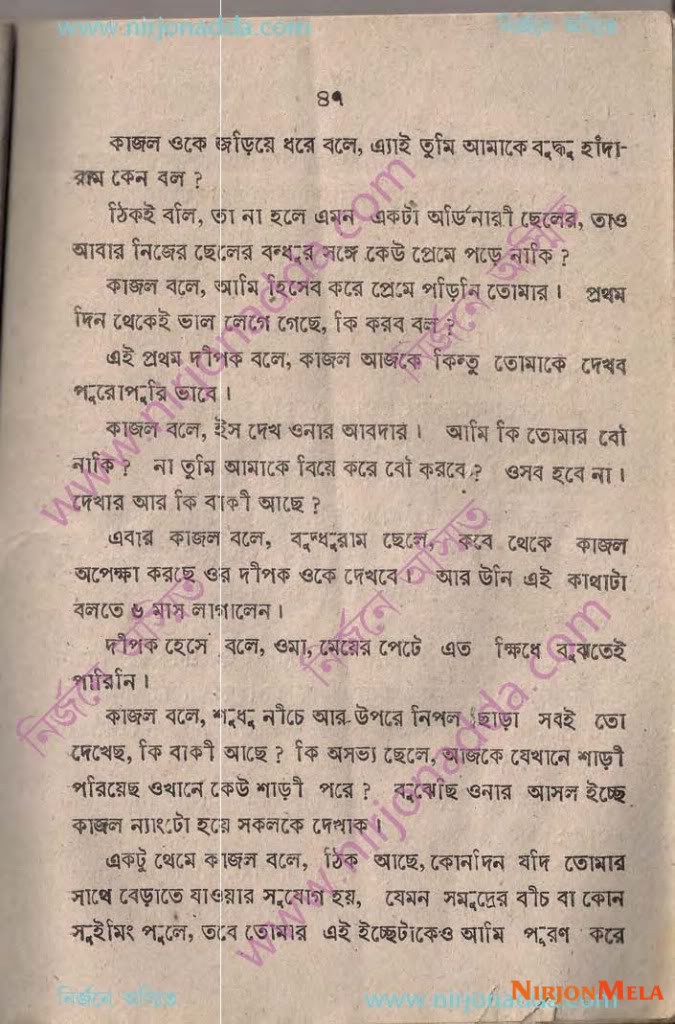 www.nirjonadda.com
নির্জনে অসিতে
৪৭
কাজল ওকে জড়িয়ে ধরে বলে, এ্যাই তুমি আমাকে বুদ্ধু হাঁদা-
রাম কেন বল ?
ঠিকই বলি, তা না হলে এমন একটা অর্ডিনারী ছেলের, তাও
আবার নিজের ছেলের বন্ধুর সঙ্গে কেউ প্রেমে পড়ে নাকি ?
কাজল বলে, আমি হিসেব করে প্রেমে পড়িনি তোমার । প্রথম
দিন থেকেই ভাল লেগে গেছে, কি করব বল ?
এই প্রথম দীপক বলে, কাজল আজকে কিন্তু তোমাকে দেখব
পুরোপুরি ভাবে ।
কাজল বলে, ইস দেখ ওনার আবদার । আমি কি তোমার বৌ
নাকি ? না তুমি আমাকে বিয়ে করে বৌ করবে ? ওসব হবে না ।
দেখার আর কি বাকী আছে ?
এবার কাজল বলে, বুদ্ধুরাম ছেলে, কবে থেকে কাজল
অপেক্ষা করছে ওর দীপক ওকে দেখবে । আর উনি এই কাথাটা
বলতে ৬ মাস লাগালেন ।
দীপক হেসে বলে, ওমা, মেয়ের পেটে এত ক্ষিধে বুঝতেই
পারিনি ।
কাজল বলে, শুধু নীচে আর উপরে নিপল ছাড়া সবই তো
দেখেছ, কি বাকী আছে ? কি অসভ্য ছেলে, আজকে যেখানে শাড়ী
পরিয়েছ ওখানে কেউ শাড়ী পরে ? বুঝেছি ওনার আসল ইচ্ছে
কাজল ন্যাংটো হয়ে সকলকে দেখাক ।
একটু থেমে কাজল বলে, ঠিক আছে, কোনদিন যদি তোমার
সাথে বেড়াতে যাওয়ার সুযোগ হয়, যেমন সমুদ্রের বীচ বা কোন
সুইমিং পুলে, তবে তোমার এই ইচ্ছেটাকেও আমি পূরণ করে
www.nirjonadda.com
নির্জনে অসিতে
নির্জনে অসিতে
নির্জনে অসিতে
www.nirjonadda.com
নির্জনে অসিতে
www.nirjonadda.com
NIRJONMELA